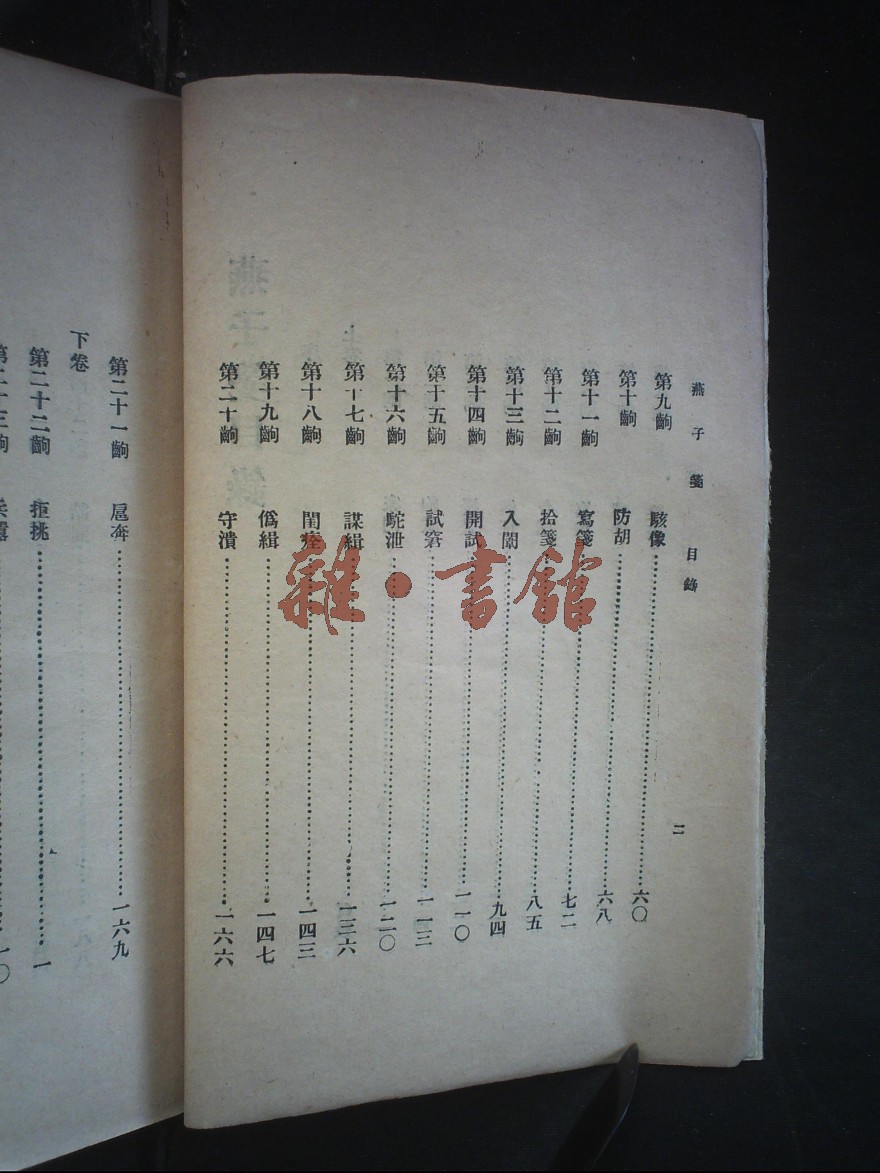 燕子箋 目錄 二
第九齣 駭像 六〇
第十齣 防胡 六八
第十一齣 寫箋 七二
第十二齣 拾箋 八五
第十三齣 入闈 九四
第十四齣 開試 一一〇
第十五齣 試窘 一一三
第十六齣 駝泄 一二〇
第十七齣 謀緝 一三六
第十八齣 閨痊 一四三
第十九齣 僞緝 一四七
第二十齣 守潰 一六六
第二十一齣 扈奔 一六九
下卷
第二十二齣 拒挑 一
第二十三齣
雜·書館